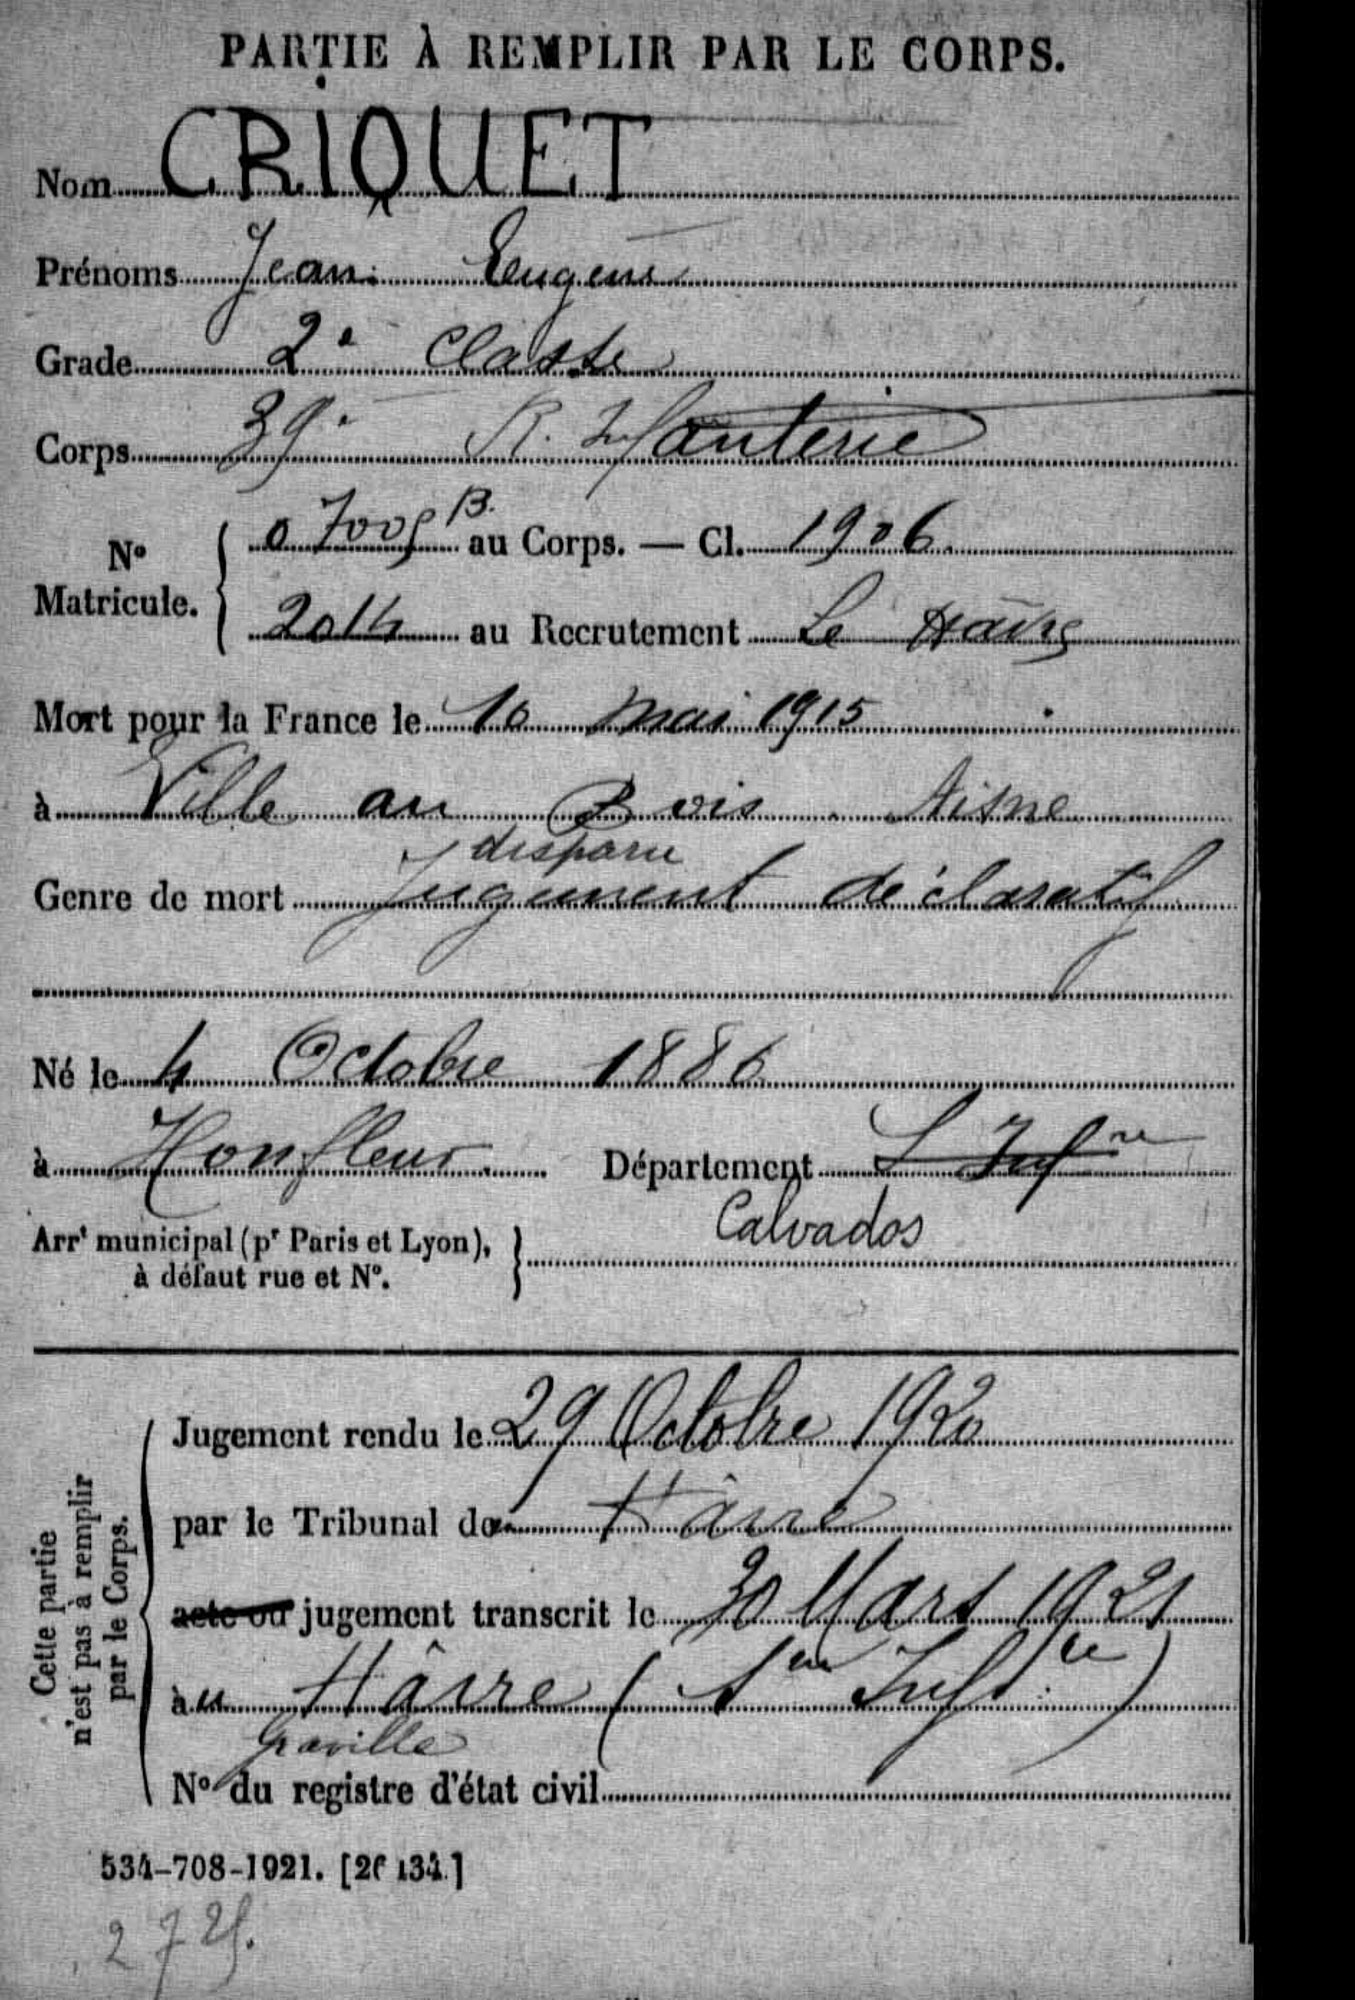 PARTIE À REMPLIR PAR LE CORPS.
Nom CRIQUET
Prénoms Jean Eugène
Grade 2e Classe
Corps 39e R. Infanterie
N° Matricule. { 07005 B. au Corps. — Cl. 1906
2014 au Recrutement Le Hâvre
Mort pour la France le 10 mai 1915
à Ville au Bois Aisne
disparu
Genre de mort Jugement déclaratif
Né le 4 Octobre 1886
à Honfleur Département S Infre
Calvados
Arrt municipal (pr Paris et Lyon),
à défaut rue et N°.
Cette partie
n'est pas à remplir
par le Corps.
Jugement rendu le 29 Octobre 1920
par le Tribunal de Hâvre
acte ou jugement transcrit le 30 Mars 1921
au Hâvre (Sne Infre)
Graville
N° du registre d'état civil
534-708-1921. [26134.]